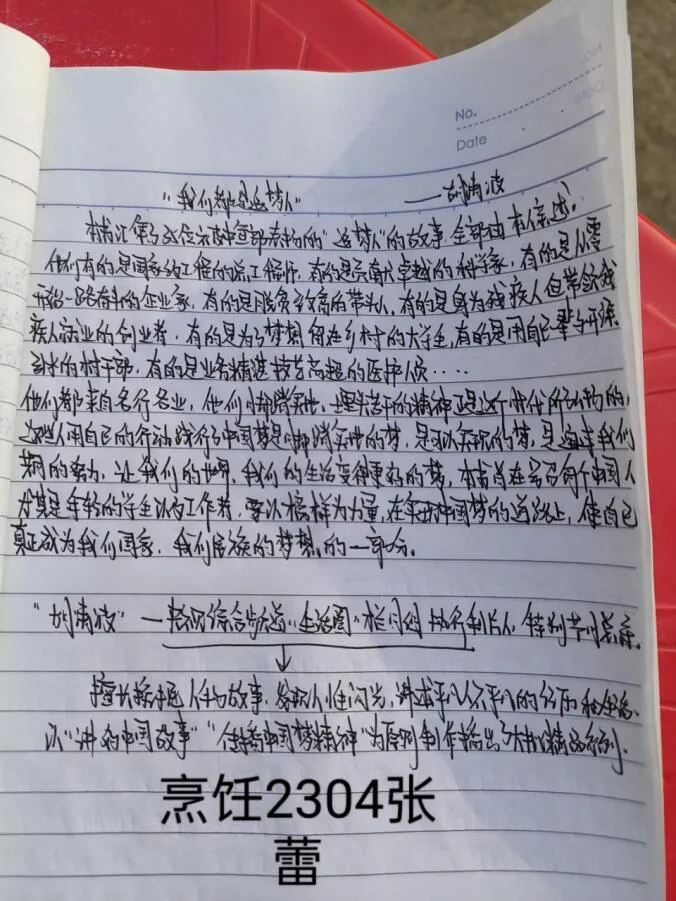 No.
Date
"我们都是追梦人" ——胡清波
本书汇集了数位示范中宣部表扬的"追梦人"的故事,全部由本人亲述。
他们有的是国家级工程的总工程师,有的是贡献卓越的科学家,有的是从零
开始一路奋斗的企业家,有的是脱贫致富的带头人,有的是身为残疾人但带领残
疾人就业的创业者,有的是为了梦想留在乡村的大学生,有的是用自己
的村干部,有的是业务精湛技艺高超的医护人员····
他们都来自各行各业,他们脚踏实地、埋头苦干的精神正是这个时代所
这些人用自己的行动践行了中国梦是脚踏实地的梦,是 的梦,是 我们
的努力,让我们的世界,我们的生活变得更好的梫,本书旨在 每个中国人
尤其是年轻的学生以及工作者,要以榜样为力量,在实现中国梦的道路上,使自己
真正成为我们国家,我们民族的梦想的一部分。
"胡清波"— 综合频道"生活圈"栏目组执行制片人,特别节目总
擅长挖掘人物故事,发现人性闪光,讲述平凡人不平凡的经历和生活。
以"讲好中国故事""传播中国梦精神"为原则制作播出
烹饪2304张
蕾